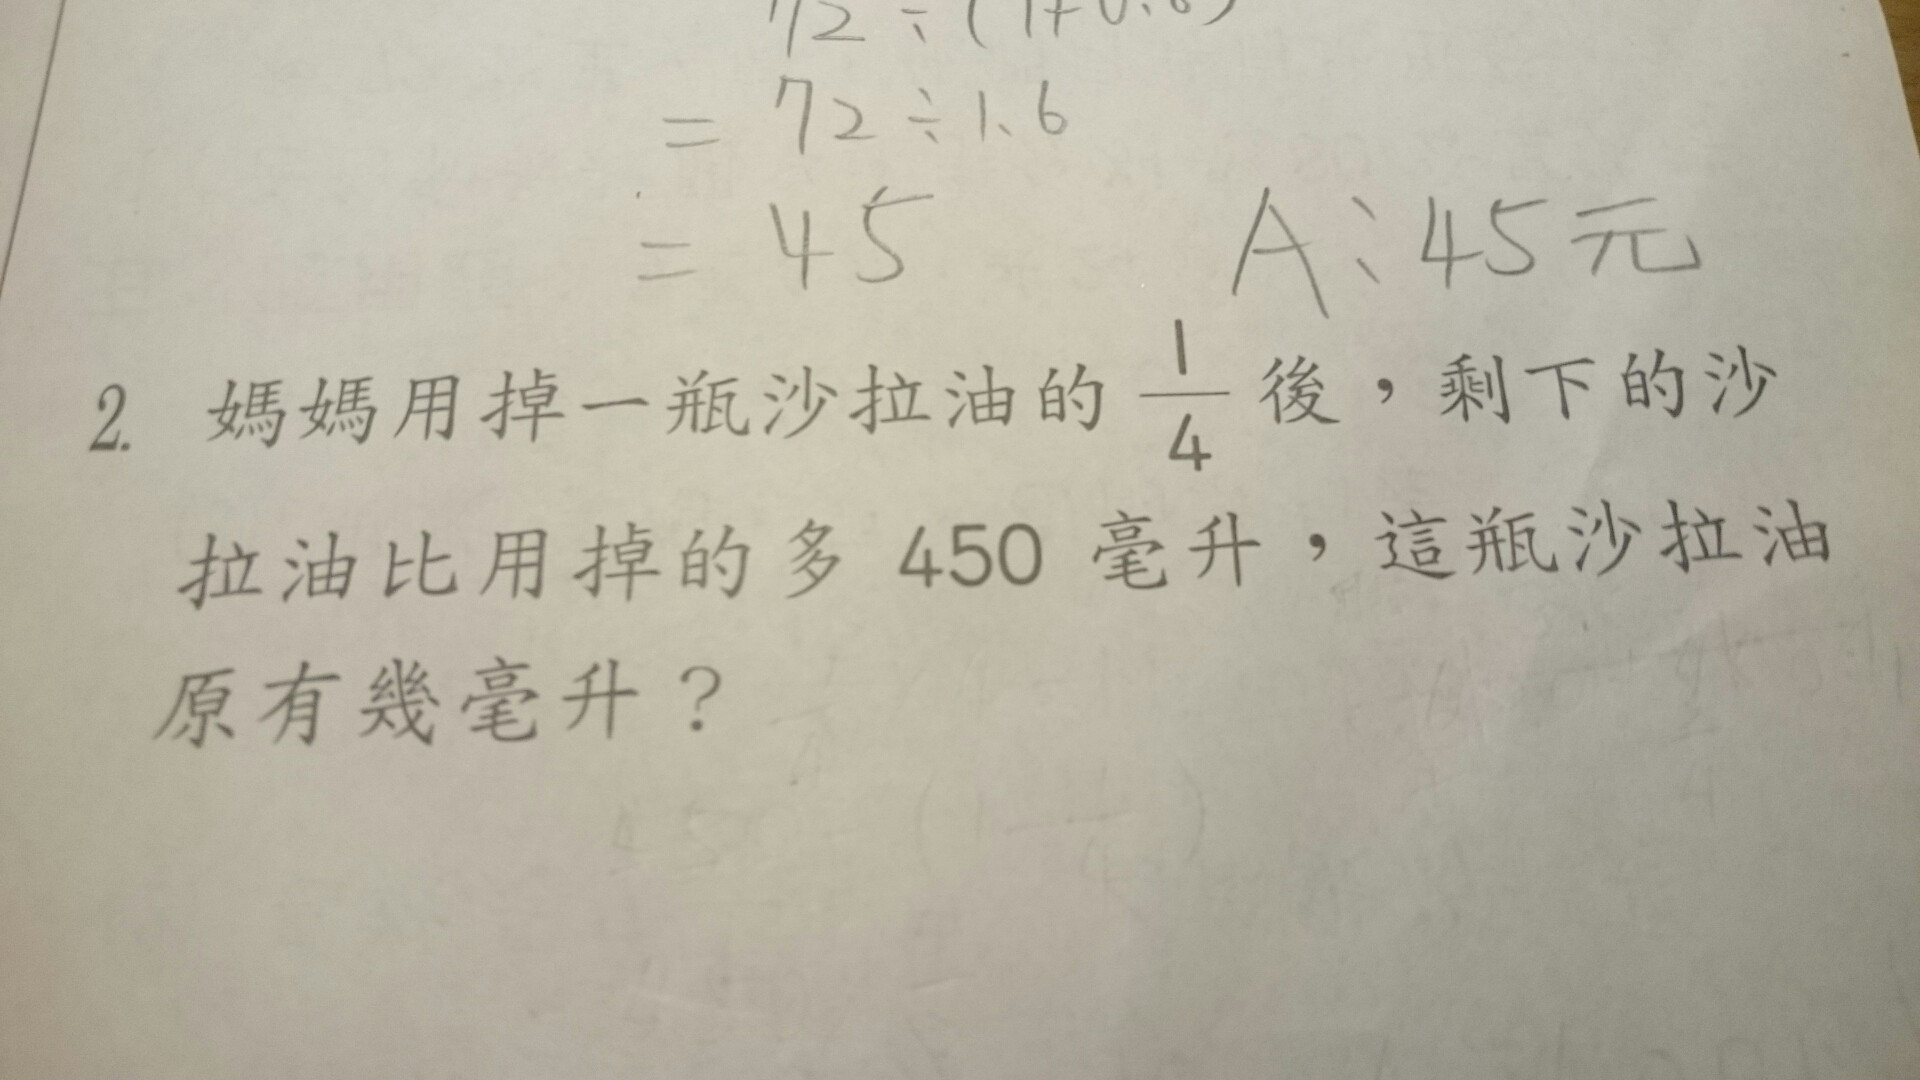 72÷(1+0.6)
=72÷1.6
=45 A:45元
2. 媽媽用掉一瓶沙拉油的 1/4 後，剩下的沙
拉油比用掉的多 450 毫升，這瓶沙拉油
原有幾毫升？